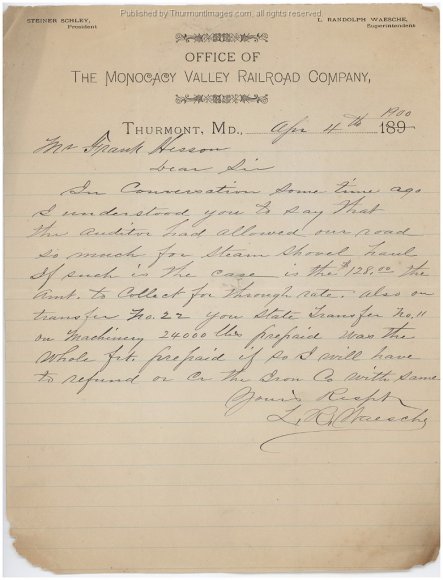 Published by Thurmontimages.com, all rights reserved.
STEINER SCHLEY,
President
L. RANDOLPH WAESCHE,
Superintendent
OFFICE OF
THE MONOCACY VALLEY RAILROAD COMPANY,
THURMONT, MD., Apr 4th 1900 189
Mr Frank Hesson
Dear Sir
In Conversation some time ago
I understood you to say that
the Auditor had allowed our road
so much for Steam Shovel haul
If such is the case is the $128.00 the
Amt. to Collect for through rate. Also on
transfer No. 22 you State Transfer No. 11
on Machinery 24000 lbs prepaid was the
whole frt. prepaid if so I will have
to refund or Cr. the Iron Co with same
Yours Respt
L. R. Waesche